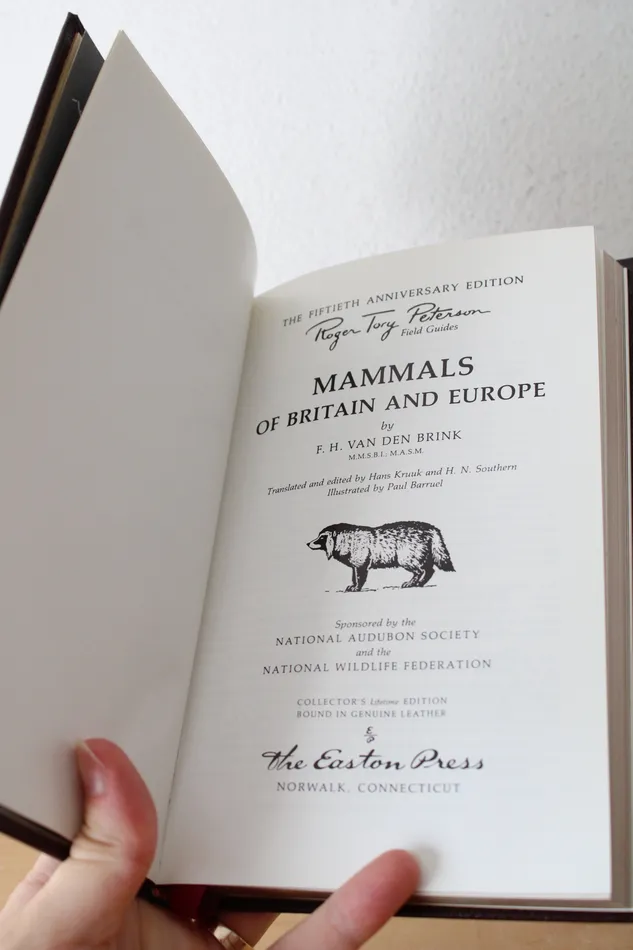 THE FIFTIETH ANNIVERSARY EDITION
Roger Tory Peterson
Field Guides
MAMMALS
OF BRITAIN AND EUROPE
by
F. H. VAN DEN BRINK
M.M.S.B.I., M.A.S.M.
Translated and edited by Hans Kruuk and H. N. Southern
Illustrated by Paul Barruel
Sponsored by the
NATIONAL AUDUBON SOCIETY
and the
NATIONAL WILDLIFE FEDERATION
COLLECTOR'S Lifetime EDITION
BOUND IN GENUINE LEATHER
E/P
The Easton Press
NORWALK, CONNECTICUT